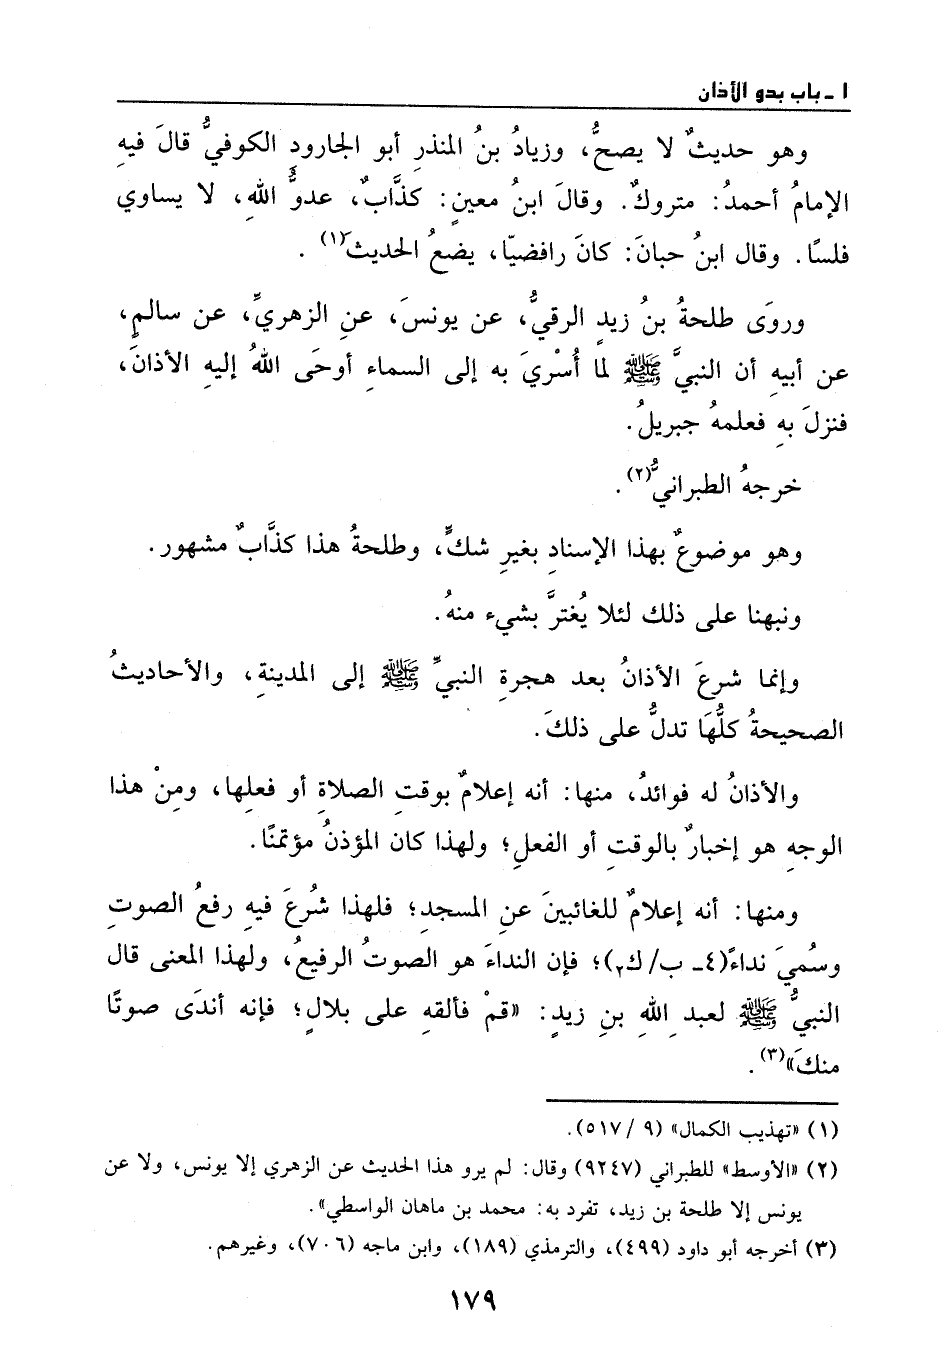 ١ ـ باب بدو الأذان
وهو حديثٌ لا يصحُّ، وزيادُ بنُ المنذرِ أبو الجارودِ الكوفيُّ قالَ فيهِ
الإمامُ أحمدُ: متروكٌ. وقالَ ابنُ معينٍ: كذَّابٌ، عدوُّ اللهِ، لا يساوي
فلسًا. وقال ابنُ حبانَ: كانَ رافضيّا، يضعُ الحديثَ(١).
وروَى طلحةُ بنُ زيدٍ الرقيُّ، عن يونسَ، عنِ الزهريِّ، عن سالمٍ،
عن أبيهِ أن النبيَّ ﷺ لما أُسْريَ به إلى السماءِ أوحَى اللهُ إليهِ الأذانَ،
فنزلَ بهِ فعلمهُ جبريلُ.
خرجهُ الطبرانيُّ(٢).
وهو موضوعٌ بهذا الإسنادِ بغيرِ شكٍّ، وطلحةُ هذا كذَّابٌ مشهور.
ونبهنا على ذلك لئلا يُغترَّ بشيء منهُ.
وإنما شرعَ الأذانُ بعد هجرةِ النبيِّ ﷺ إلى المدينةِ، والأحاديثُ
الصحيحةُ كلُّهَا تدلُّ على ذلكَ.
والأذانُ له فوائدُ، منها: أنه إعلامٌ بوقتِ الصلاةِ أو فعلِها، ومِنْ هذا
الوجهِ هو إخبارٌ بالوقتِ أو الفعلِ؛ ولهذا كان المؤذنُ مؤتمنًا.
ومنها: أنه إعلامٌ للغائبينَ عنِ المسجدِ؛ فلهذا شُرعَ فيهِ رفعُ الصوتِ
وسُميَ نداءً(٤ـ ب/ك٢)؛ فإن النداءَ هو الصوتُ الرفيعُ، ولهذا المعنى قال
النبيُّ ﷺ لعبدِ اللهِ بنِ زيدٍ: «قمْ فألقهِ على بلالٍ؛ فإنه أندَى صوتًا
منكَ»(٣).
(١) «تهذيب الكمال» (٩ /٥١٧).
(٢) «الأوسط» للطبراني (٩٢٤٧) وقال: لم يرو هذا الحديث عن الزهري إلا يونس، ولا عن
يونس إلا طلحة بن زيد، تفرد به: محمد بن ماهان الواسطي».
(٣) أخرجه أبو داود (٤٩٩)، والترمذي (١٨٩)، وابن ماجه (٧٠٦)، وغيرهم.
١٧٩